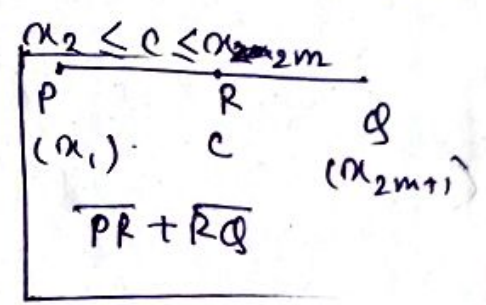 x₂ ≤ c ≤ x₂ₘ
P R Q
(x₁) c (x₂ₘ₊₁)
PR + RQ